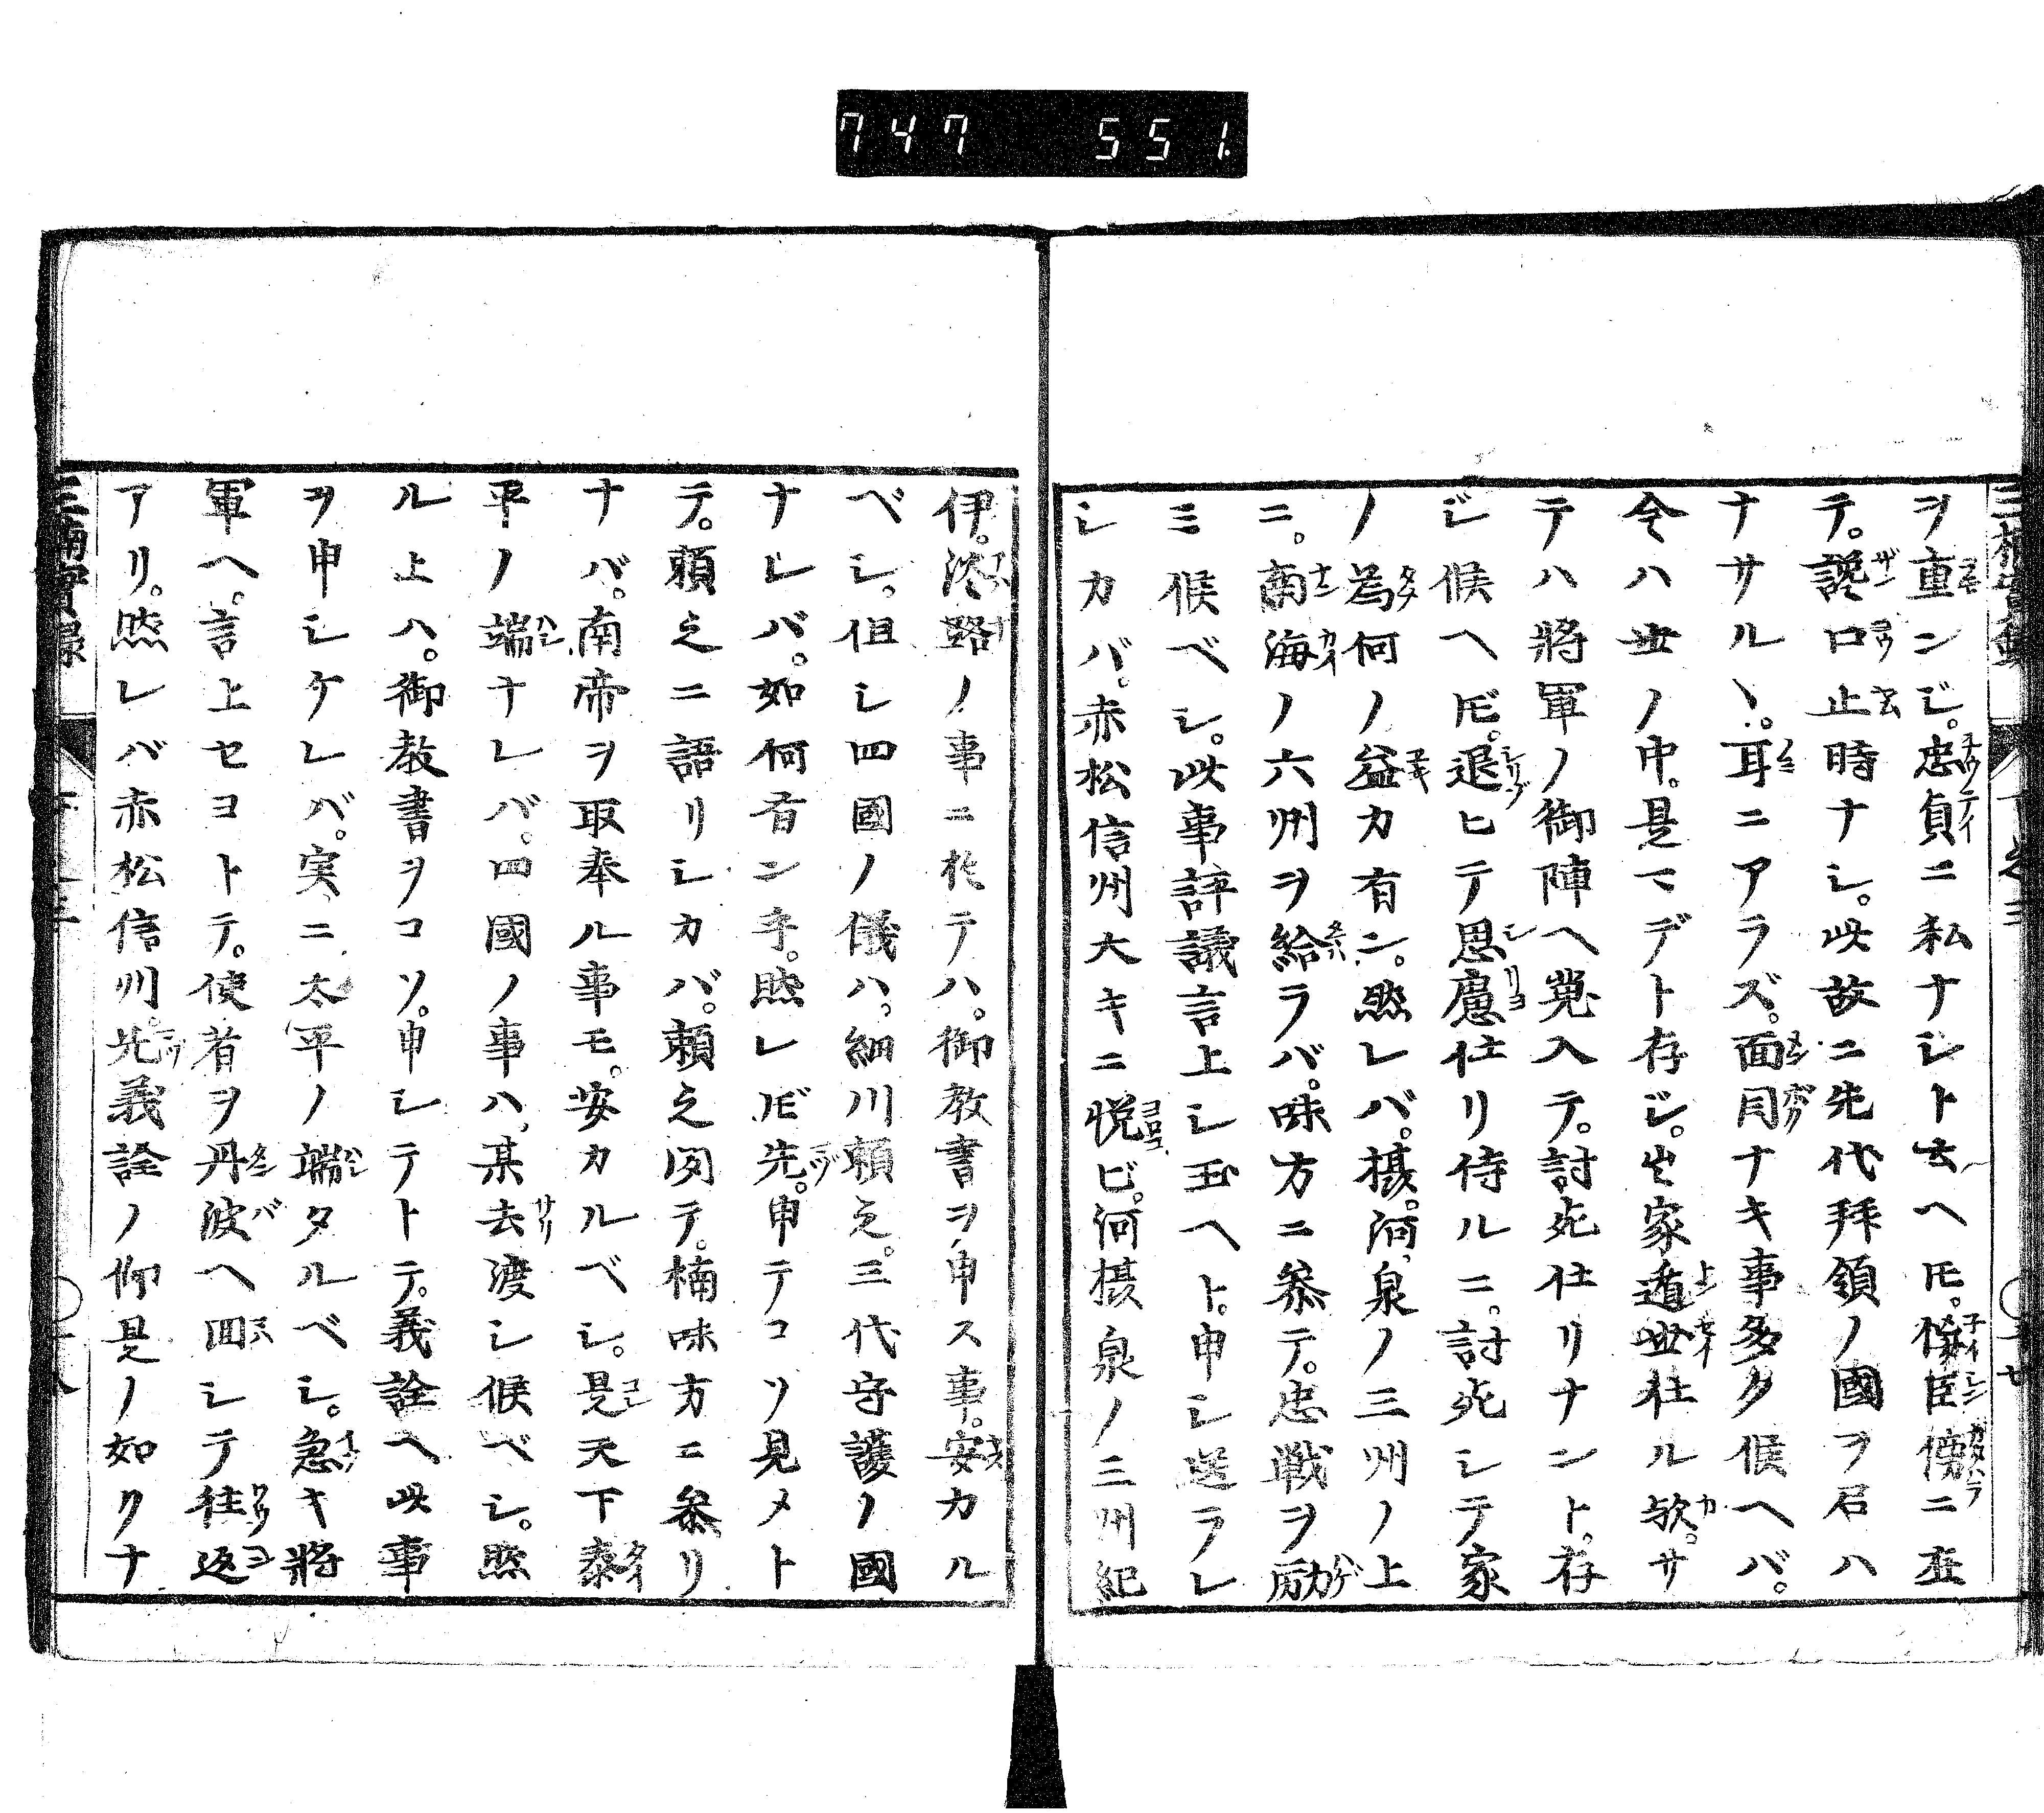 747 551
ヲ重ンジ。忠貞ニ私ナシト云ヘ𪜈。佞臣傍ニ並
テ。讒口止時ナシ。此故ニ先代拜領ノ國ヲ召ハ
ナサルヽ。耳ニアラズ。面目ナキ事多タ候ヘバ。
今ハ世ノ中。是マデト存ジ。出家遁世仕ル欤。サ
テハ將軍ノ御陣ヘ蒐入テ。討死仕リナント。存
ジ候ヘ𪜈。退ヒテ思慮仕リ侍ルニ。討死シテ家
ノ為何ノ益カ有ン。然レバ。摂。河。泉ノ三州ノ上
ニ。南海ノ六州ヲ給ラバ。味方ニ參テ。忠戦ヲ励
ミ候ベシ。此事評議言上シ玉ヘト。申シ送ラレ
シカバ。赤松信州大キニ悦ビ。河摂泉ノ三州紀
伊。淡路ノ事ニ於テハ。御教書ヲ申ス事。安カル
ベシ。但シ四國ノ儀ハ。細川頼之。三代守護ノ國
ナレバ。如何有ン乎。然レ𪜈先。申テコソ見メト
テ。頼之ニ語リシカバ。頼之聞テ。楠味方ニ參リ
ナバ。南帝ヲ取奉ル事モ。安カルベシ。是天下泰
平ノ端ナレバ。四國ノ事ハ。某去渡シ候ベシ。然
ル上ハ。御教書ヲコソ。申シテトテ。義詮ヘ此事
ヲ申シケレバ。実ニ太平ノ端タルベシ。急キ將
軍ヘ。言上セヨトテ。使者ヲ丹波ヘ回シテ往返
アリ。然レバ赤松信州。此義詮ノ仰是ノ如クナ